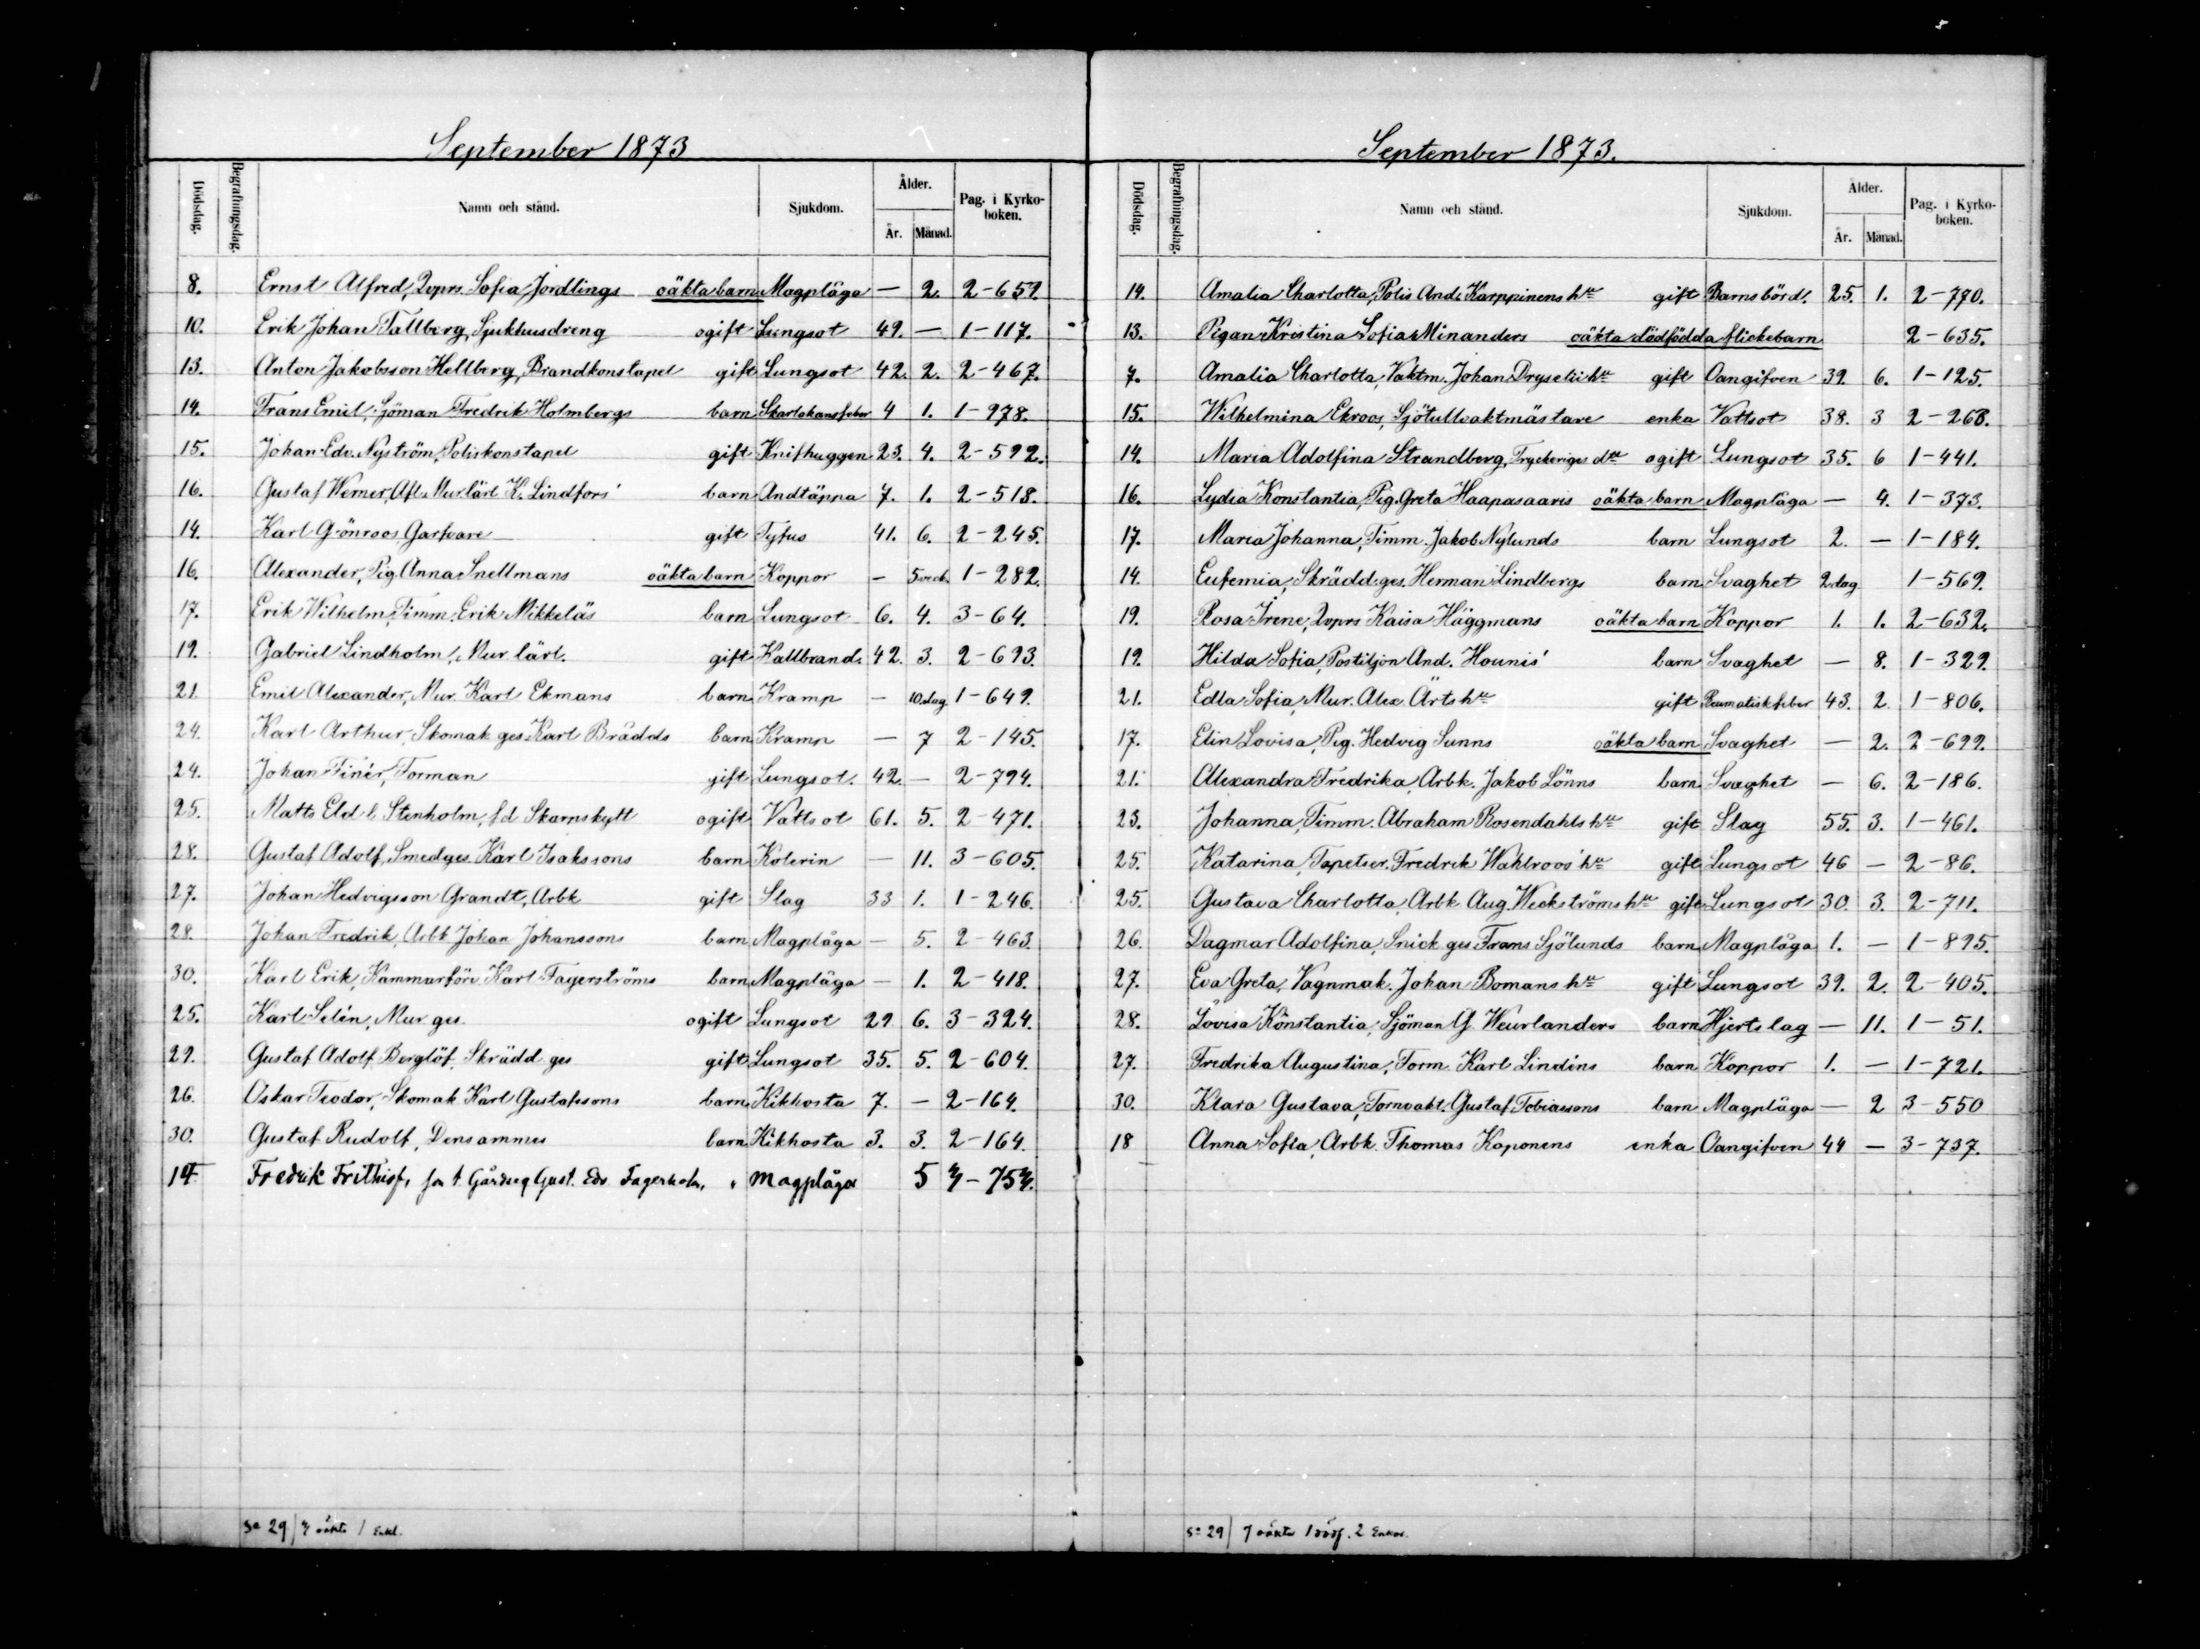 September 1873
Dödsdag. Begrafningsdag. Namn och stånd. Sjukdom. Ålder. År. Månad. Pag. i Kyrkoboken.
8. Ernst Alfred, Qvprs. Sofia Jordlings oäkta barn Magplåga — 2. 2-659.
10. Erik Johan Tallberg, Sjukhusdreng ogift Lungsot 49. — 1-117.
13. Anton Jakobsson Hellberg, Brandkonstapel gift Lungsot 42. 2. 2-467.
14. Frans Emil, Sjöman Fredrik Holmbergs barn Skarlakansfeber 4 1. 1-978.
15. Johan Edv. Nyström, Poliskonstapel gift Knifhuggen 23. 4. 2-592.
16. Gustaf Werner, Afl. Mur. lärl K. Lindfors' barn Andtäppa 7. 1. 2-518.
14. Karl Grönroos Garfvare gift Tyfus 41. 6. 2-245.
16. Alexander, Pig. Anna Snellmans oäkta barn Koppor — 5 veck. 1-282.
17. Erik Wilhelm, Timm. Erik Mikkeläs barn Lungsot 6. 4. 3-64.
19. Gabriel Lindholm, Mur. lärl. gift Kallbrand. 42. 3. 2-693.
21. Emil Alexander, Mur. Karl Ekmans barn Kramp — 10 dag 1-649.
24. Karl Arthur, Skomak ges Karl Brädds barn Kramp — 7 2-145.
24. Johan Finér, Forman gift Lungsot. 42. — 2-794.
25. Matts Eld. l. Stenholm, fd Skarpskytt ogift Vattsot 61. 5. 2-471.
28. Gustaf Adolf, Smedges. Karl Isakssons barn Kolerin — 11. 3-605.
27. Johan Hedvigsson Grandt, Arbk gift Slag 33 1. 1-246.
28. Johan Fredrik, Arbk Johan Johanssons barn Magplåga — 5. 2-463.
30. Karl Erik, Kammarförv. Karl Fagerströms barn Magplåga — 1. 2-418.
25. Karl Selin, Mur ges. ogift Lungsot 29 6. 3-324.
29. Gustaf Adolf Berglöf, Skrädd ges gift Lungsot 35. 5. 2-604.
26. Oskar Teodor, Skomak Karl Gustafssons barn Kikhosta 7. — 2-164.
30. Gustaf Rudolf, Densammes barn Kikhosta 3. 3. 2-164.
14 Fredrik Frithiof, Gust. Edv. Fagerholm, Magplåga 5
Sa 29 oäkta 1 Enkl.
September 1873.
Dödsdag. Begrafningsdag. Namn och stånd. Sjukdom. Ålder. År. Månad. Pag. i Kyrkoboken.
14. Amalia Charlotta, Polis And. Karppinens hu gift Barnsbörd. 25. 1. 2-770.
13. Pigan Kristina Sofia Minanders oäkta dödfödda flickebarn 2-635.
7. Amalia Charlotta, Vaktm. Johan Dryselii hu gift Oangifven 39. 6. 1-125.
15. Wilhelmina Ekroos, Sjötullvaktmästare enka Vattsot 38. 3 2-268.
14. Maria Adolfina Strandberg, Tryckeriges dr ogift Lungsot 35. 6 1-441.
16. Lydia Konstantia, Pig. Greta Haapasaaris oäkta barn Magplåga — 4. 1-373.
17. Maria Johanna, Timm. Jakob Nylunds barn Lungsot 2. — 1-184.
14. Eufemia, Skrädd. ges. Herman Lindbergs barn Svaghet 2 dag 1-569.
19. Rosa Irene, Qvprs Kaisa Häggmans oäkta barn Koppor 1. 1. 2-632.
19. Hilda Sofia, Postiljon And. Hounis' barn Svaghet — 8. 1-329.
21. Edla Sofia, Mur. Alex. Ärts hu gift Reumatisk feber 43. 2. 1-806.
17. Elin Lovisa, Pig. Hedvig Sunns oäkta barn Svaghet — 2. 2-699.
21. Alexandra Fredrika, Arbk. Jakob Lönns barn Svaghet — 6. 2-186.
23. Johanna, Timm. Abraham Rosendahls hu gift Slag 55. 3. 1-461.
25. Katarina, Tapetser. Fredrik Wahlroos' hu gift Lungsot 46 — 2-86.
25. Gustava Charlotta, Arbk Aug. Weckströms hu gift Lungsot 30. 3. 2-711.
26. Dagmar Adolfina, Snick ges Frans Sjölunds barn Magplåga 1. — 1-895.
27. Eva Greta, Vagnmak. Johan Bomans hu gift Lungsot 39. 2. 2-405.
28. Lovisa Konstantia, Sjöman G Weurlanders barn Hjertslag — 11. 1-51.
27. Fredrika Augustina, Form. Karl Lindins barn Koppor 1. — 1-721.
30. Klara Gustava, Tornvakt. Gustaf Tobiassons barn Magplåga — 2 3-550
18 Anna Sofia, Arbk. Thomas Koponens enka Oangifven 44 — 3-737.
Sa 29 7 oäkta 1 dödf. 2 Enkor.